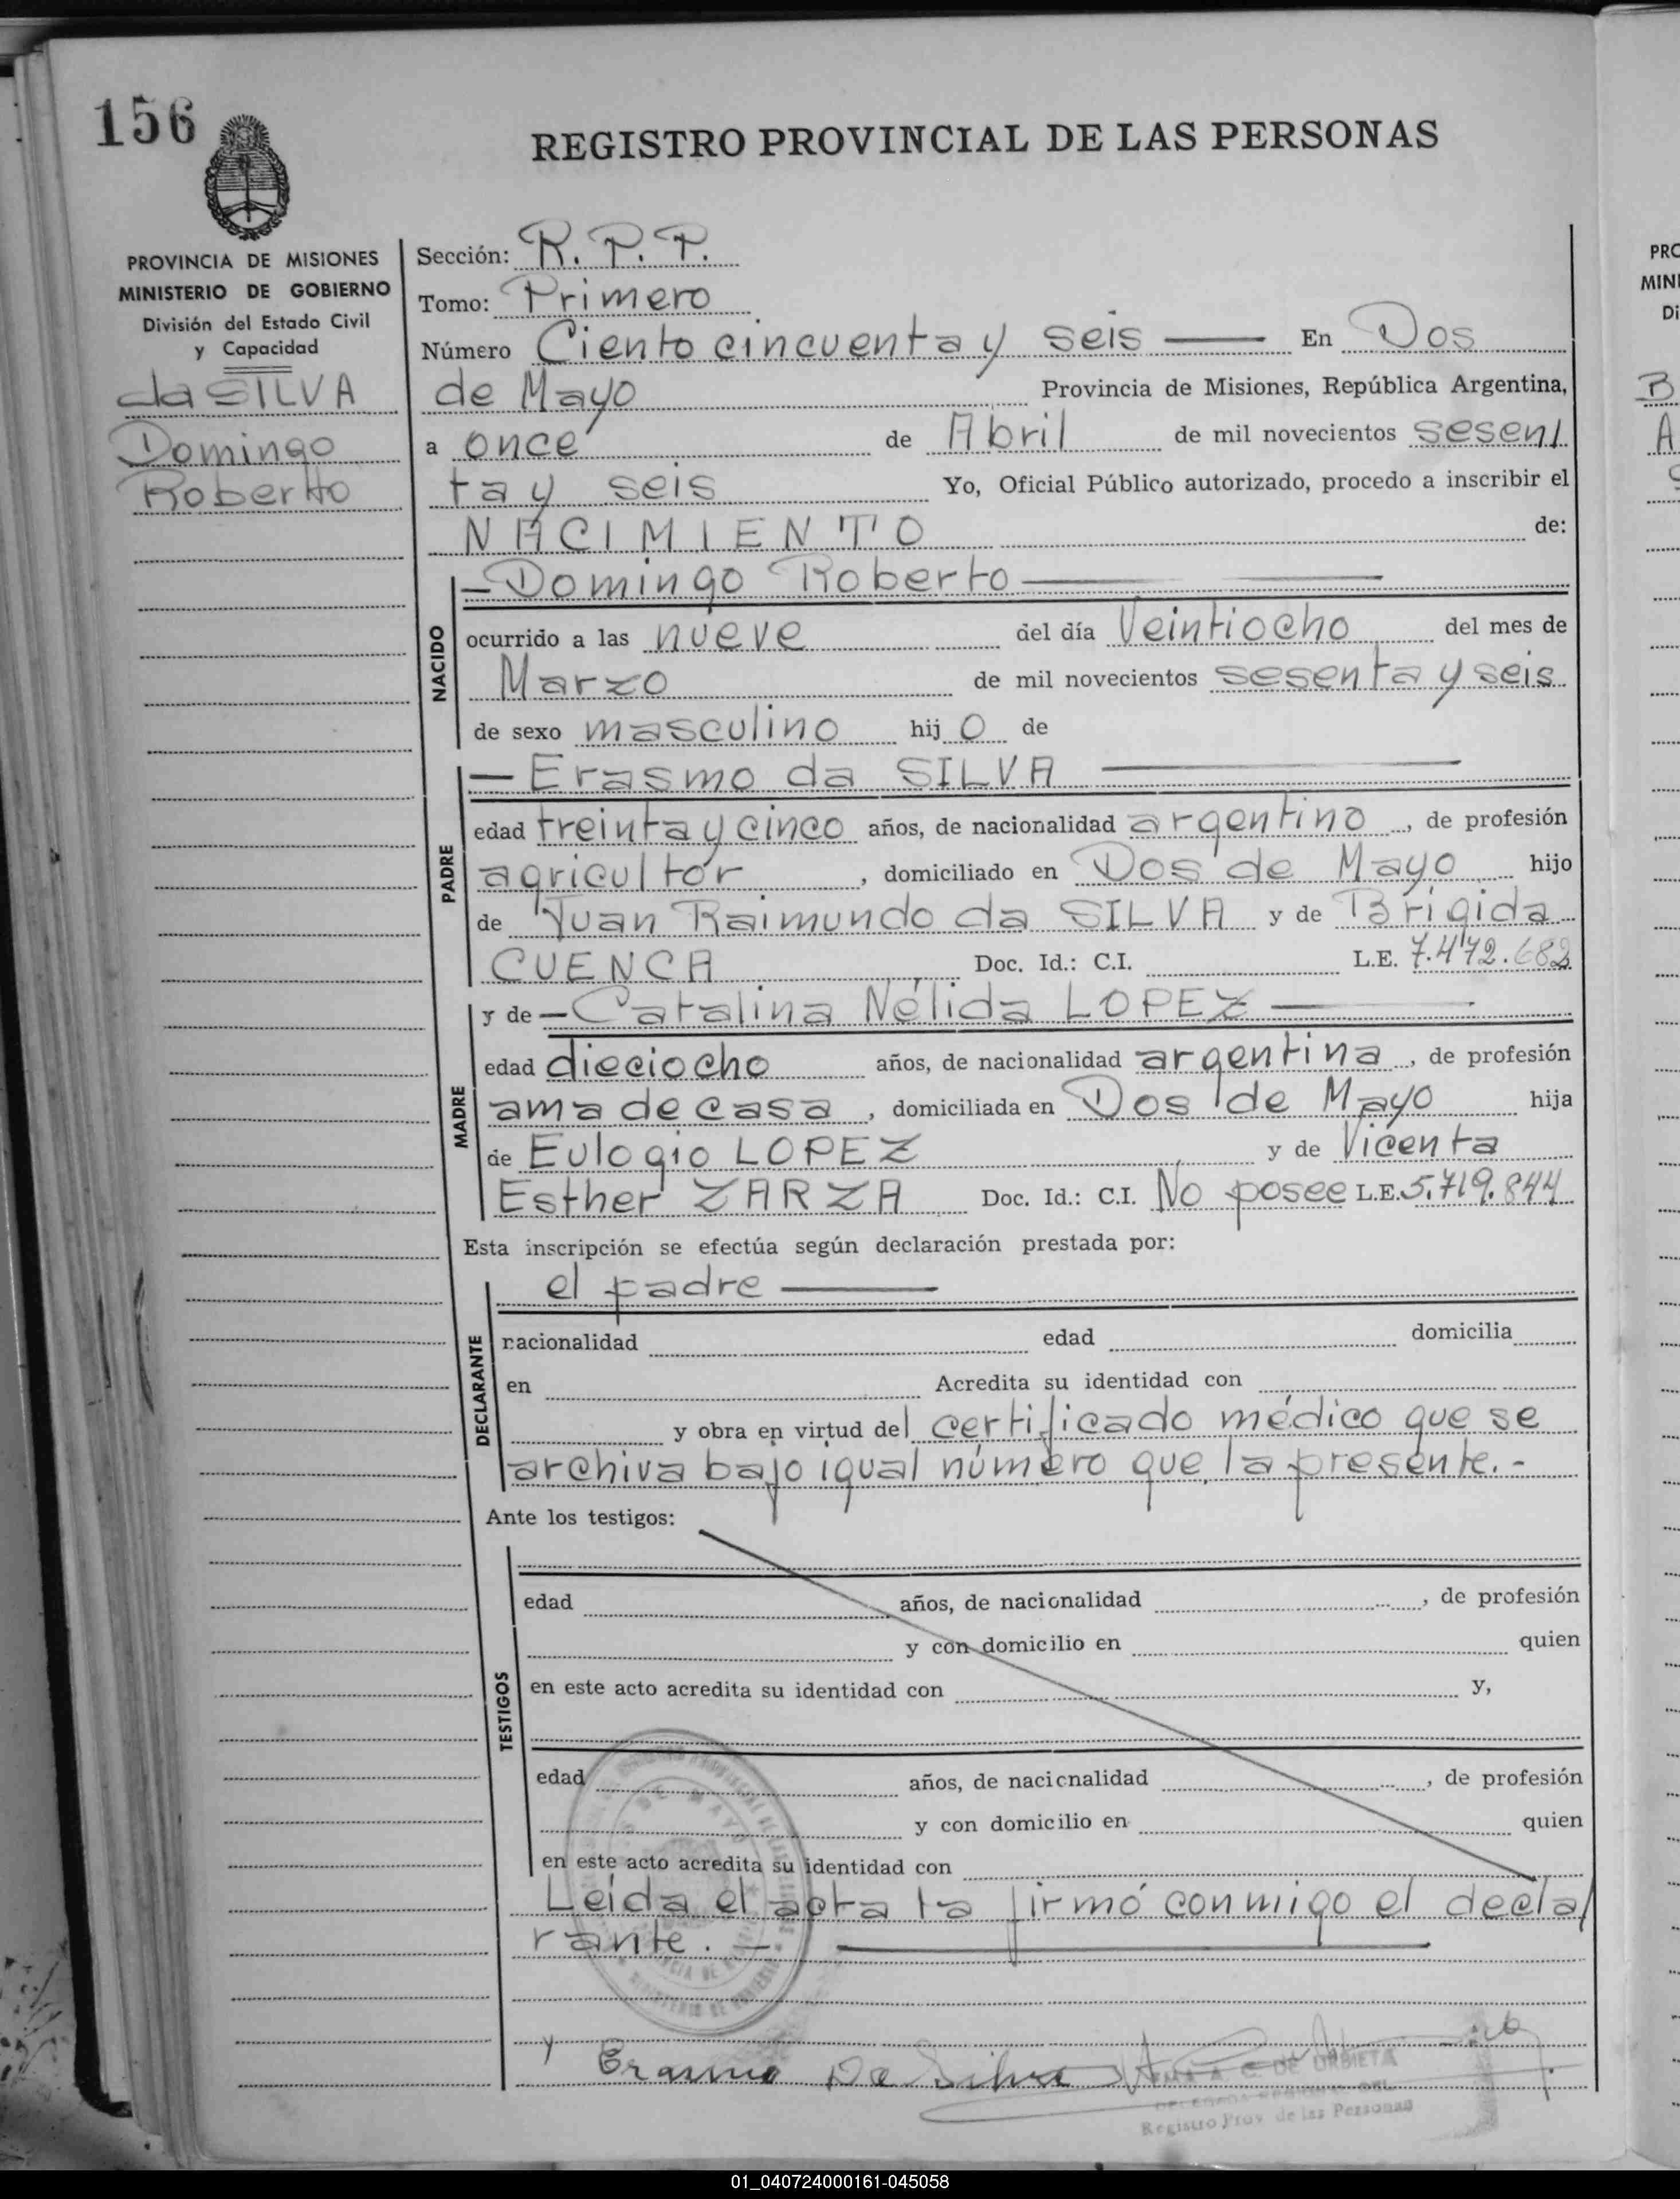 156
REGISTRO PROVINCIAL DE LAS PERSONAS
PROVINCIA DE MISIONES
MINISTERIO DE GOBIERNO
División del Estado Civil
y Capacidad
da SILVA
Domingo
Roberto
Sección: R. P. P.
Tomo: Primero
Número Ciento cincuenta y seis En Dos
de Mayo Provincia de Misiones, República Argentina,
a once de Abril de mil novecientos sesen/
ta y seis Yo, Oficial Público autorizado, procedo a inscribir el
NACIMIENTO de:
NACIDO
— Domingo Roberto —
ocurrido a las nueve del día Veintiocho del mes de
Marzo de mil novecientos sesenta y seis
de sexo masculino hij o de
PADRE
— Erasmo da SILVA —
edad treinta y cinco años, de nacionalidad argentino, de profesión
agricultor, domiciliado en Dos de Mayo hijo
de Juan Raimundo da SILVA y de Brígida
CUENCA Doc. Id.: C.I. L.E. 7.472.682
MADRE
y de — Catalina Nélida LOPEZ —
edad dieciocho años, de nacionalidad argentina, de profesión
ama de casa, domiciliada en Dos de Mayo hija
de Eulogio LOPEZ y de Vicenta
Esther ZARZA Doc. Id.: C.I. No posee L.E. 5.719.844
Esta inscripción se efectúa según declaración prestada por:
DECLARANTE
el padre —
nacionalidad edad domicilia
en Acredita su identidad con
y obra en virtud del certificado médico que se
archiva bajo igual número que la presente.-
Ante los testigos:
TESTIGOS
edad años, de nacionalidad , de profesión
y con domicilio en quien
en este acto acredita su identidad con y,
edad años, de nacionalidad , de profesión
y con domicilio en quien
en este acto acredita su identidad con
Leída el acta la firmó conmigo el decla/
rante. —
Erasmo Da Silva
A. C. DE URBIETA
Registro Prov. de las Personas
PRO
MINI
Di
B
A
01_040724000161-045058